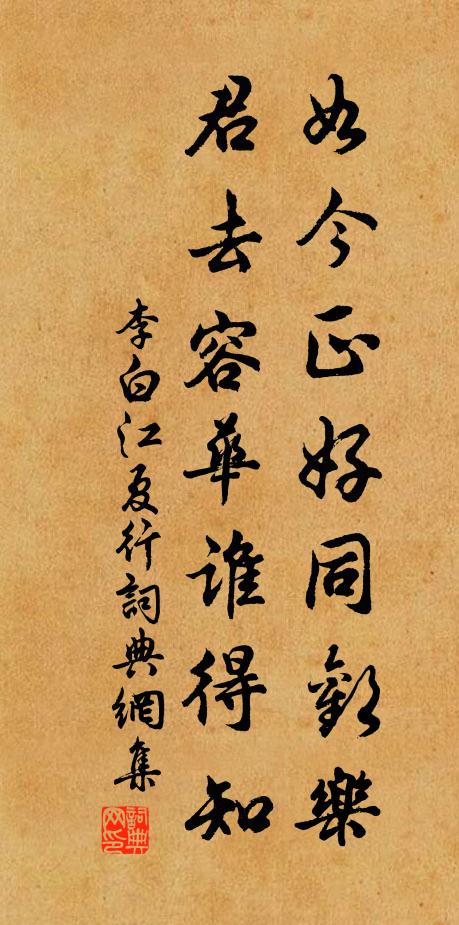 如今正好同歡樂
君去容華誰得知
李白江夏行詞典網集
詞典网印